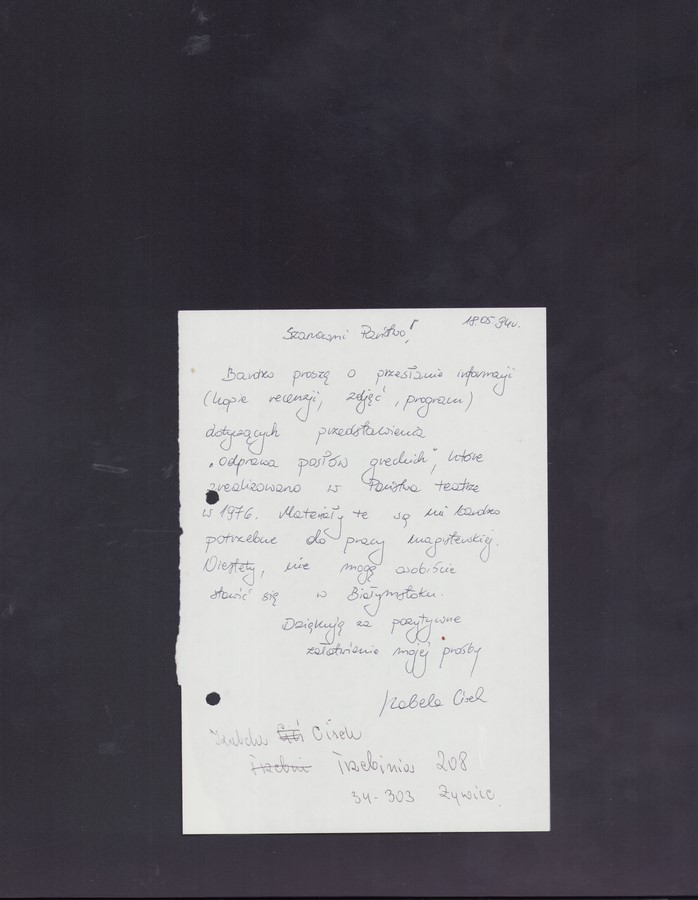 18.05.94r.
Szanowni Państwo!
Bardzo proszę o przesłanie informacji
(kopie recenzji, zdjęć, program)
dotyczących przedstawienia
„Odprawa posłów greckich", które
zrealizowano w Państwa teatrze
w 1976. Materiały te są mi bardzo
potrzebne do pracy magisterskiej.
Niestety, nie mogę osobiście
stawić się w Białymstoku.
Dziękuję za pozytywne
załatwienie mojej prośby
Izabela Cisek
Izabela Cisek
Trzebinia 208
34-303 Żywiec